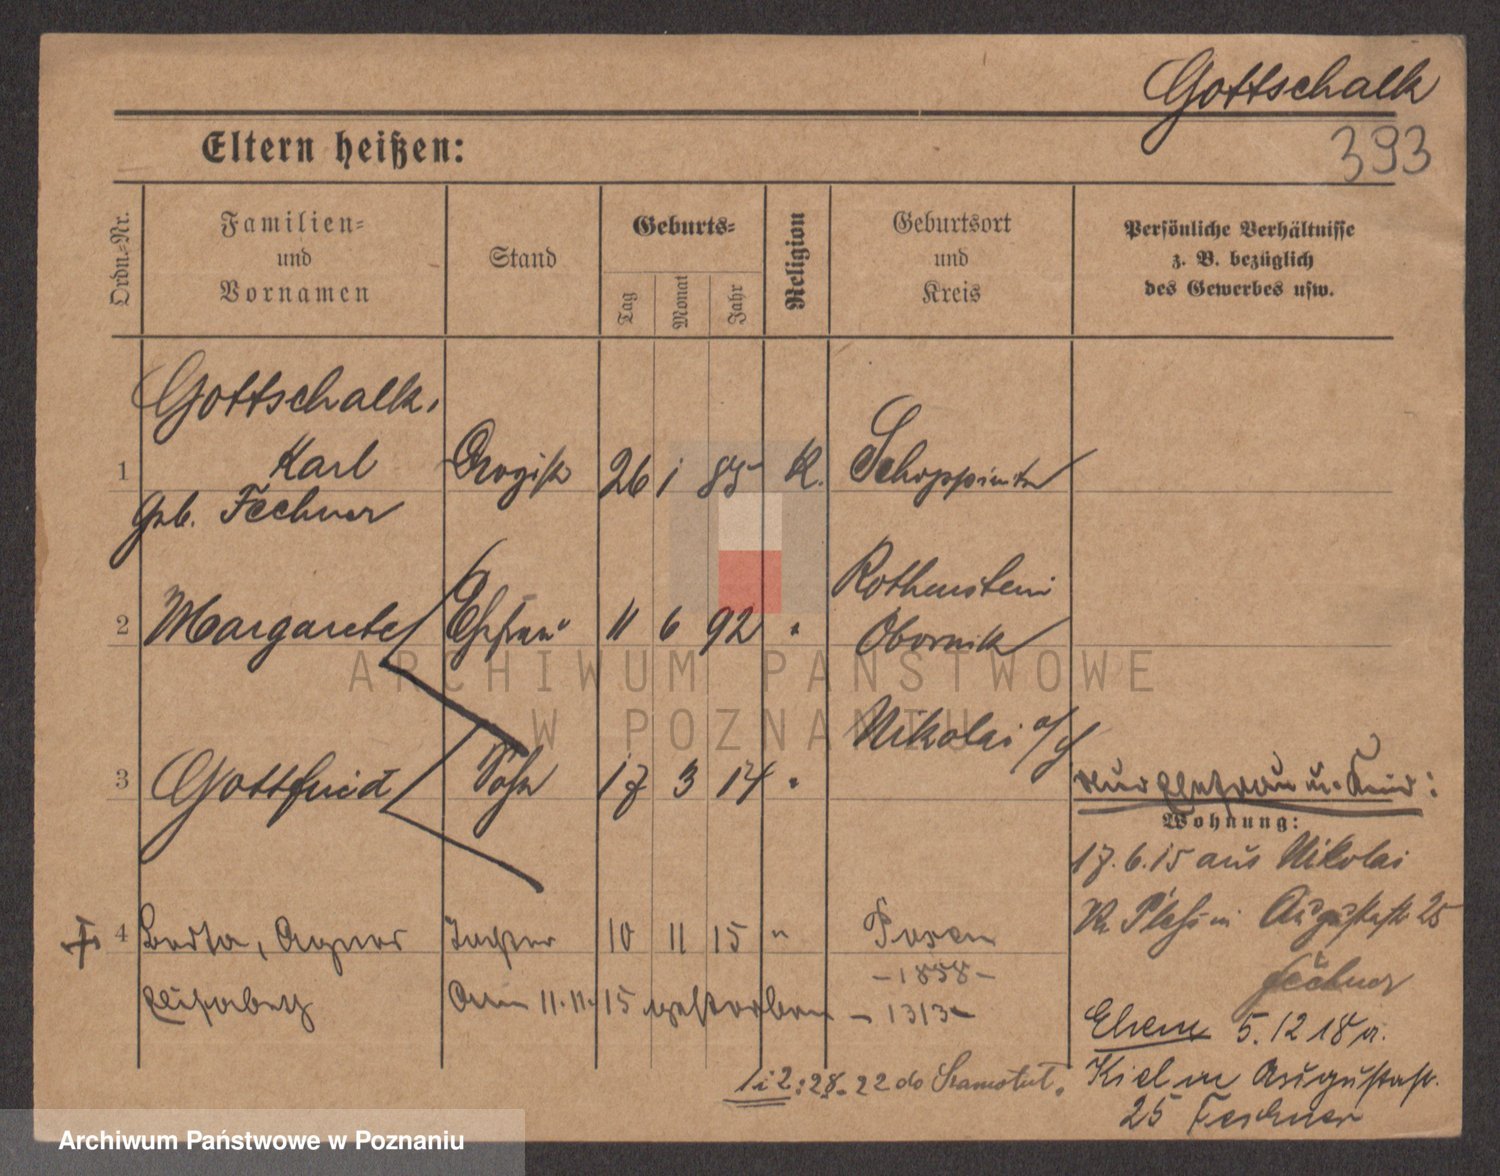 Gottschalk
393
Eltern heißen:
Ordn.-Nr.
Familien-
und
Vornamen
Stand
Geburts-
Tag
Monat
Jahr
Religion
Geburtsort
und
Kreis
Persönliche Verhältnisse
z. B. bezüglich
des Gewerbes usw.
Gottschalk,
1 Karl Drogist 26 1 85 K. Schoppinitz
geb. Fechner
Rothenstein
2 Margarete Ehefrau 11 6 92 " Obornik
Nikolai o/S
3 Gottfried Sohn 17 3 14 "
Nur Ehefrau u. Kind:
Wohnung:
17.6.15 aus Nikolai
Kr. Pless in Augustastr 25
Fechner
4 Berta, Agnes Tochter 10 11 15 " Posen
- 1858 -
Elisabeth Am 11.11.15 gestorben - 1313 -
Ehem 5.12.18 v.
Kiel in Augustastr.
25 Fechner
1 i 2: 28.22 do Szamotuł.
ARCHIWUM PAŃSTWOWE
W POZNANIU
Archiwum Państwowe w Poznaniu